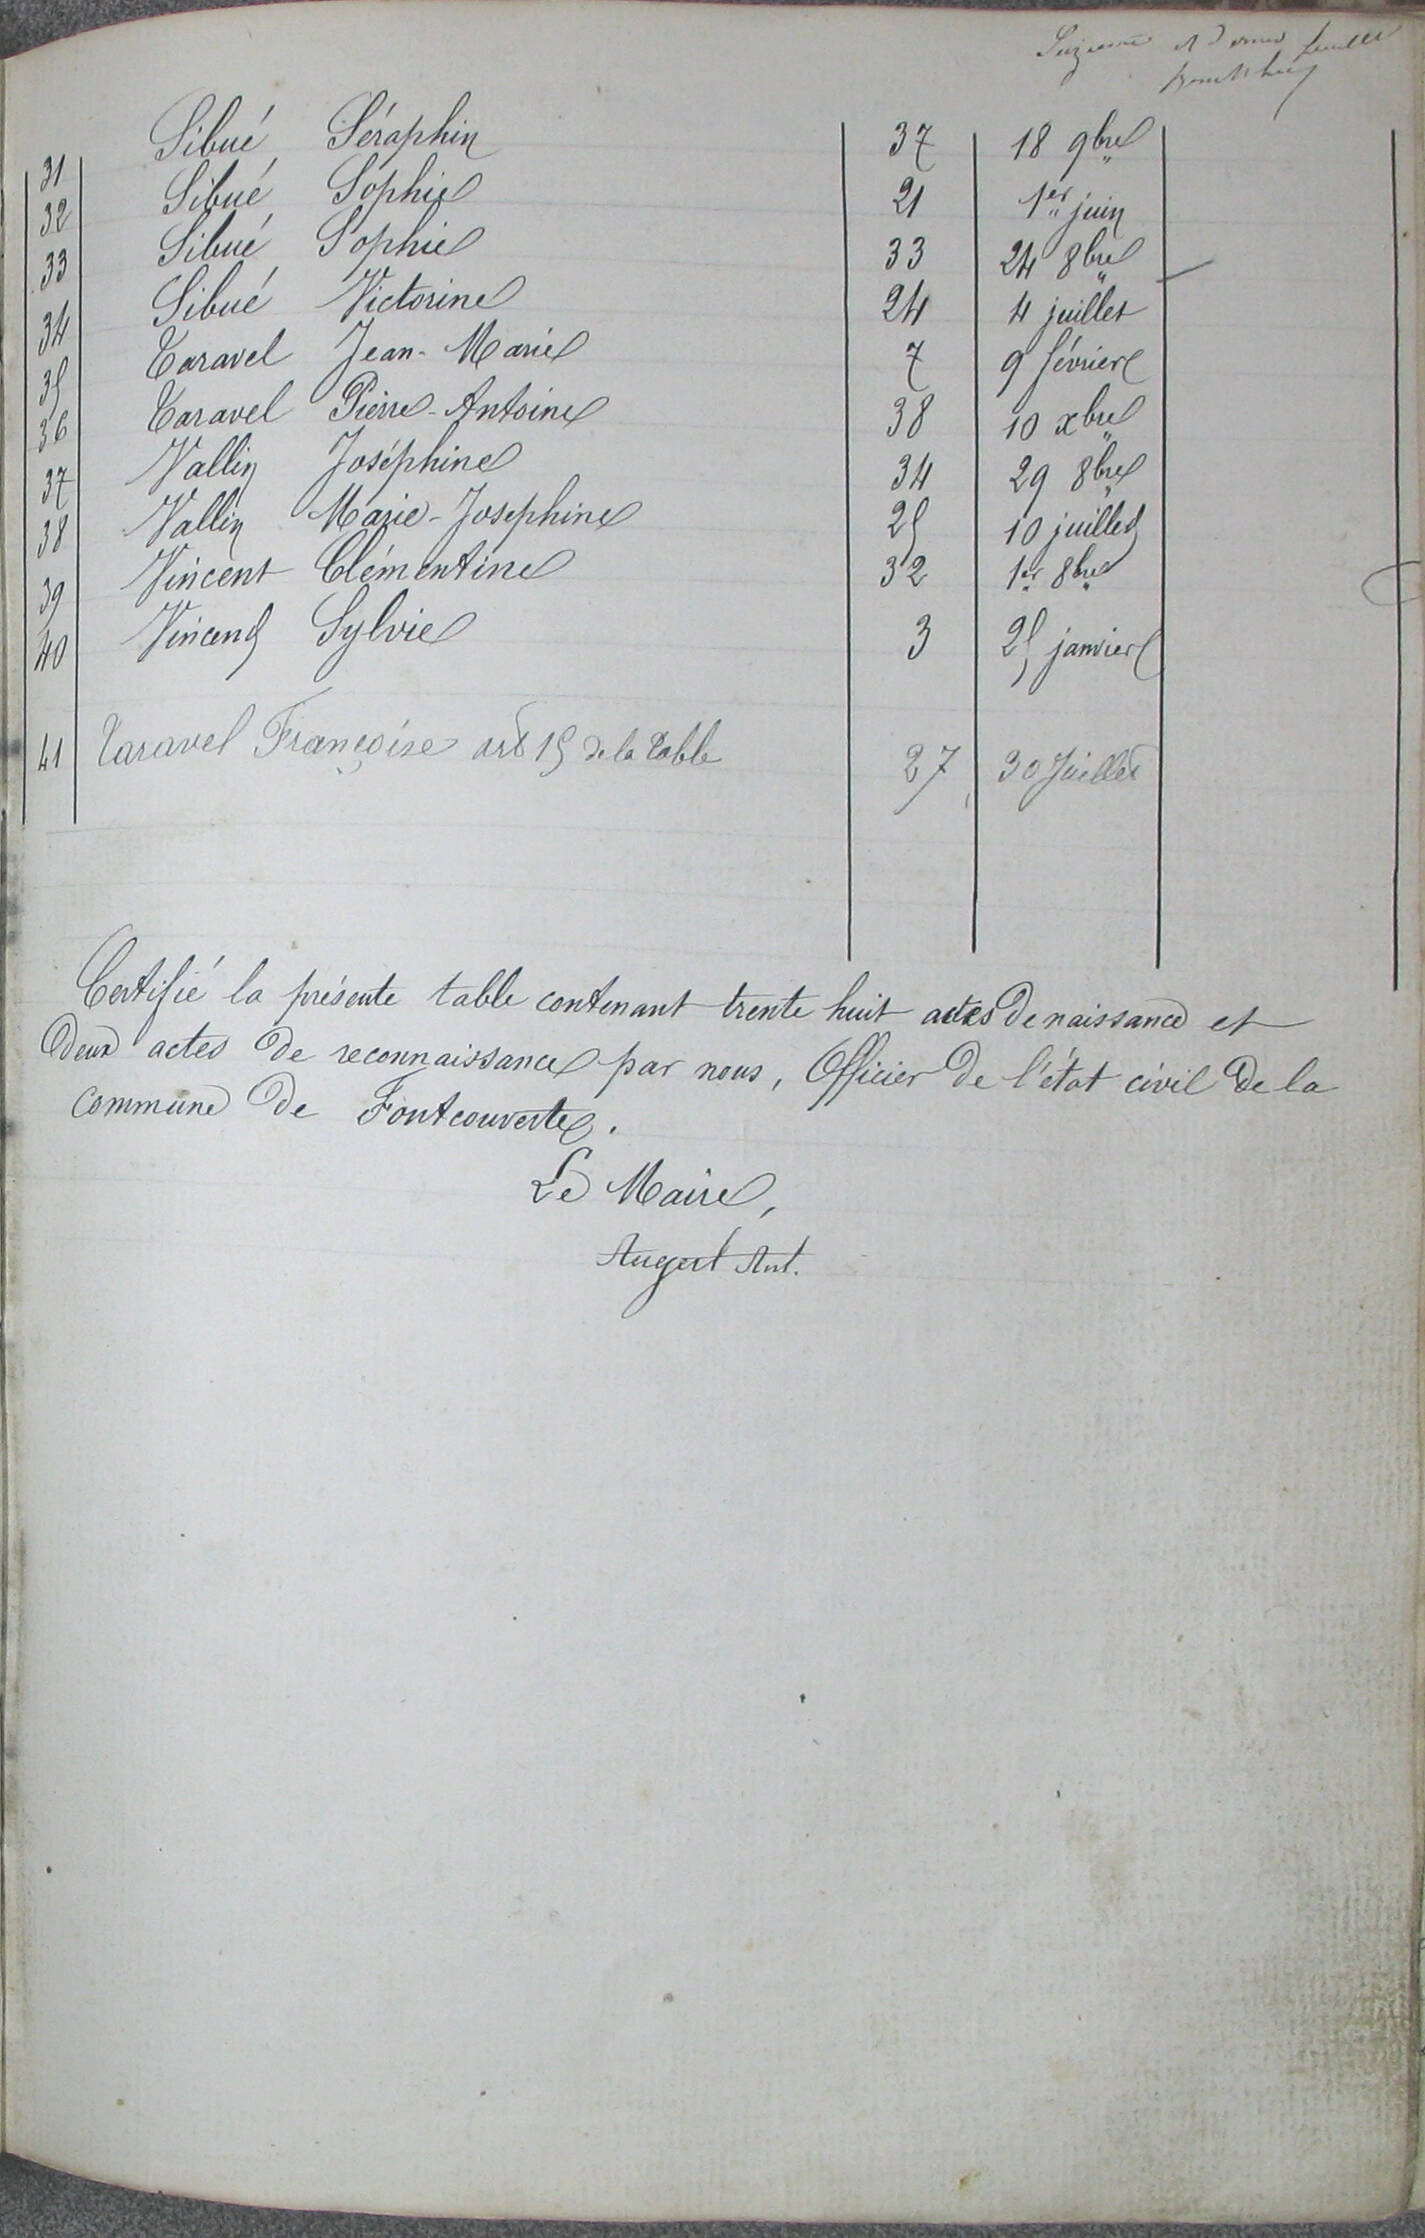 feuillet
31 Sibué Séraphin 37 18 9bre
32 Sibué Sophie 21 1er juin
33 Sibué Sophie 33 24 8bre
34 Sibué Victorine 24 4 juillet
35 Taravel Jean-Marie 7 9 février
36 Taravel Pierre-Antoine 38 10 xbre
37 Vallin Joséphine 34 29 8bre
38 Vallin Marie-Josephine 25 10 juillet
39 Vincent Clémentine 32 1er 8bre
40 Vincent Sylvie 3 25 janvier
41 Taravel Françoise art 15 de la Table 27 30 Juillet
Certifié la présente table contenant trente huit actes de naissance et
deux actes de reconnaissance par nous, Officier de l'état civil de la
commune de Fontcouverte.
Le Maire,
Augert Ant.